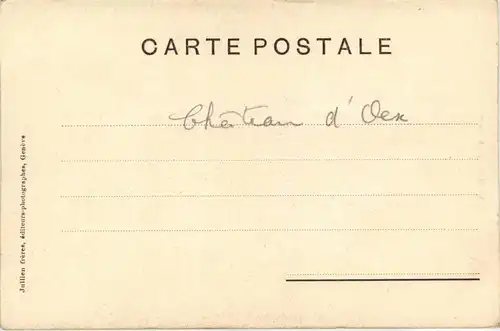 CARTE POSTALE
Château d'Oex
Jullien frères, éditeurs-photographes, Genève